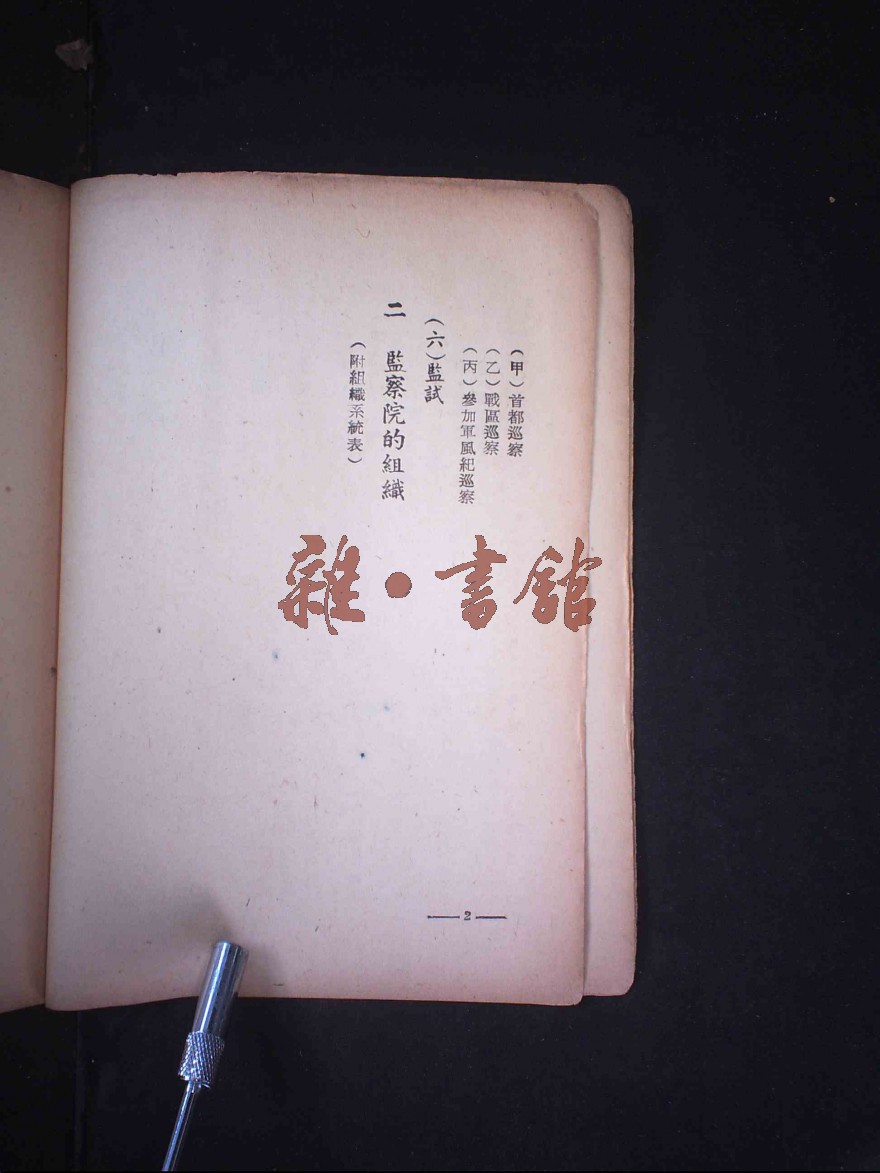 （甲）首都巡察
（乙）戰區巡察
（丙）參加軍風紀巡察
（六）監試
二 監察院的組織
（附組織系統表）
雜·書館
2